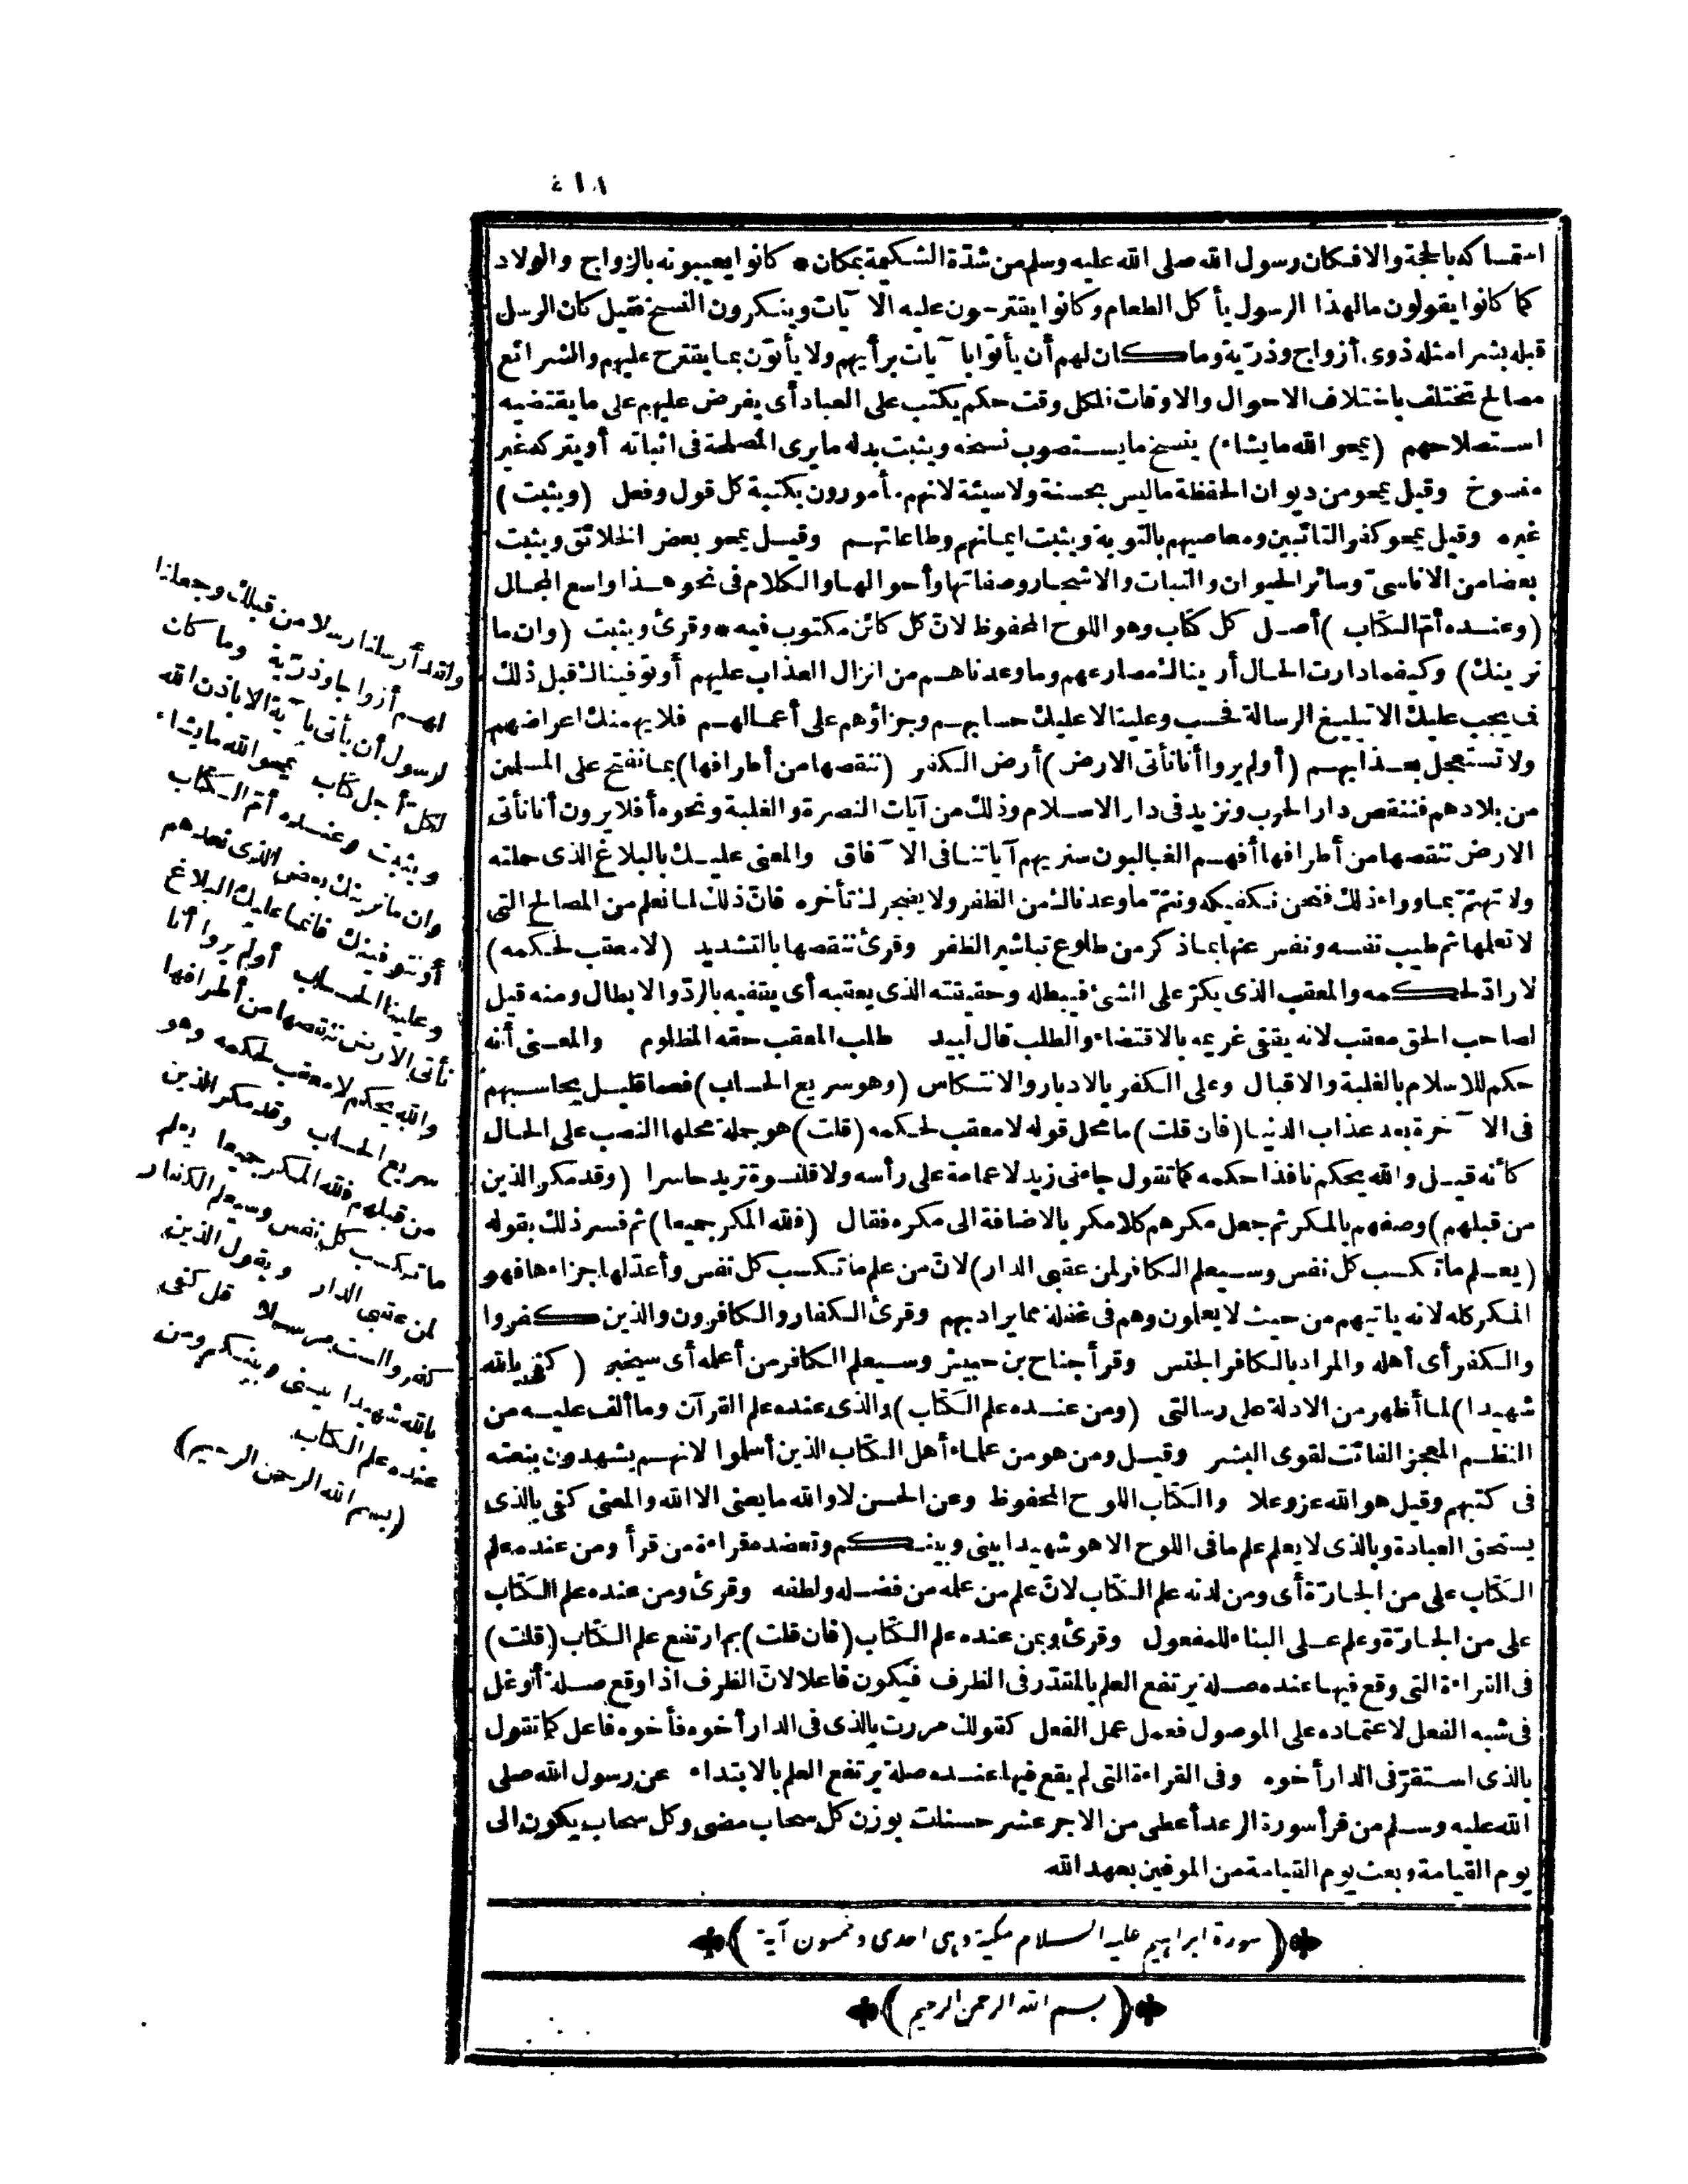 ٤١٨
استمساكه بالحجة والا فكان رسول الله صلى الله عليه وسلم من شدّة الشكيمة بمكان * كانوا يعيبونه بالزواج والولاد
كما كانوا يقولون مال هذا الرسول يأكل الطعام وكانوا يقترحون عليه الآيات وينكرون النسخ فقيل كان الرسل
قبله بشرا مثله ذوى أزواج وذرّية وما كان لهم أن يأتوا بآيات برأيهم ولا يأتون بما يقترح عليهم والشرائع
مصالح تختلف باختلاف الاحوال والاوقات فلكل وقت حكم يكتب على العباد أى يفرض عليهم على ما يقتضيه
استصلاحهم (يمحو الله ما يشاء) ينسخ ما يستصوب نسخه ويثبت بدله ما يرى المصلحة فى اثباته أو يتركه غير
منسوخ وقيل يمحو من ديوان الحفظة ما ليس بحسنة ولا سيئة لانهم مأمورون بكتبة كل قول وفعل (ويثبت)
غيره وقيل يمحو كفر التائبين ومعاصيهم بالتوبة ويثبت ايمانهم وطاعاتهم وقيل يمحو بعض الخلائق ويثبت
بعضا من الاناسىّ وسائر الحيوان والنبات والاشجار وصفاتها وأحوالها والكلام فى نحو هذا واسع المجال
(وعنده أمّ الكتاب) أصل كل كتاب وهو اللوح المحفوظ لانّ كل كائن مكتوب فيه * وقرئ ويثبت (وان ما
نرينك) وكيفما دارت الحال أريناك مصارعهم وما وعدناهم من انزال العذاب عليهم أو توفيناك قبل ذلك
فما يجب عليك الا تبليغ الرسالة فحسب وعلينا لا عليك حسابهم وجزاؤهم على أعمالهم فلا يهمنك اعراضهم
ولا تستعجل بعذابهم (أولم يروا أنا نأتى الارض) أرض الكفر (ننقصها من أطرافها) بما نفتح على المسلمين
من بلادهم فننقص دار الحرب ونزيد فى دار الاسلام وذلك من آيات النصرة والغلبة ونحوه أفلا يرون أنا نأتى
الارض ننقصها من أطرافها أفهم الغالبون سنريهم آياتنا فى الآفاق والمعنى عليك بالبلاغ الذى حملته
ولا تهتمّ بما وراء ذلك فنحن نكفيكه ونتمّ ما وعدناك من الظفر ولا يضجرك تأخره فانّ ذلك لما نعلم من المصالح التى
لا تعلمها ثم طيب نفسه ونفس عنها بما ذكر من طلوع تباشير الظفر وقرئ ننقصها بالتشديد (لا معقب لحكمه)
لا رادّ لحكمه والمعقب الذى يكرّ على الشئ فيبطله وحقيقته الذى يعقبه أى يقفيه بالردّ والابطال ومنه قيل
لصاحب الحق معقب لانه يقفى غريمه بالاقتضاء والطلب قال لبيد طلب المعقب حقه المظلوم والمعنى أنه
حكم للاسلام بالغلبة والاقبال وعلى الكفر بالادبار والانتكاس (وهو سريع الحساب) فعما قليل يحاسبهم
فى الآخرة بعد عذاب الدنيا (فان قلت) ما محل قوله لا معقب لحكمه (قلت) هو جملة محلها النصب على الحال
كأنه قيل والله يحكم نافذا حكمه كما تقول جاءنى زيد لا عمامة على رأسه ولا قلنسوة تريد حاسرا (وقد مكر الذين
من قبلهم) وصفهم بالمكر ثم جعل مكرهم كلا مكر بالاضافة الى مكره فقال (فلله المكر جميعا) ثم فسر ذلك بقوله
(يعلم ما تكسب كل نفس وسيعلم الكافر لمن عقبى الدار) لانّ من علم ما تكسب كل نفس وأعدّ لها جزاءها فهو
المكر كله لانه يأتيهم من حيث لا يعلمون وهم فى غفلة مما يراد بهم وقرئ الكفار والكافرون والذين كفروا
والكفر أى أهله والمراد بالكافر الجنس وقرأ جناح بن حبيش وسيعلم الكافر من أعلمه أى سيخبر (كفى بالله
شهيدا) لما أظهر من الادلة على رسالتى (ومن عنده علم الكتاب) والذى عنده علم القرآن وما ألف عليه من
النظم المعجز الفائت لقوى البشر وقيل ومن هو من علماء أهل الكتاب الذين أسلموا لانهم يشهدون بنعته
فى كتبهم وقيل هو الله عز وعلا والكتاب اللوح المحفوظ وعن الحسن لا والله ما يعنى الا الله والمعنى كفى بالذى
يستحق العبادة وبالذى لا يعلم علم ما فى اللوح الا هو شهيدا بينى وبينكم وتعضده قراءة من قرأ ومن عنده علم
الكتاب على من الجارّة أى ومن لدنه علم الكتاب لانّ علم من علمه من فضله ولطفه وقرئ ومن عنده علم الكتاب
على من الجارّة وعلم على البناء للمفعول وقرئ وبمن عنده علم الكتاب (فان قلت) بم ارتفع علم الكتاب (قلت)
فى القراءة التى وقع فيها عنده صلة يرتفع العلم بالمقدّر فى الظرف فيكون فاعلا لانّ الظرف اذا وقع صلة أوغل
فى شبه الفعل لاعتماده على الموصول فعمل عمل الفعل كقولك مررت بالذى فى الدار أخوه فأخوه فاعل كما تقول
بالذى استقرّ فى الدار أخوه وفى القراءة التى لم يقع فيها عنده صلة يرتفع العلم بالابتداء عن رسول الله صلى
الله عليه وسلم من قرأ سورة الرعد أعطى من الاجر عشر حسنات بوزن كل سحاب مضى وكل سحاب يكون الى
يوم القيامة وبعث يوم القيامة من الموفين بعهد الله
(سورة ابراهيم عليه السلام مكية وهى احدى وخمسون آية)
(بسم الله الرحمن الرحيم)
ولقد أرسلنا رسلا من قبلك وجعلنا
لهم أزواجا وذرّية وما كان
لرسول أن يأتى بآية الا باذن الله
لكل أجل كتاب يمحو الله ما يشاء
ويثبت وعنده أمّ الكتاب
وان ما نرينك بعض الذى نعدهم
أو نتوفينك فانما عليك البلاغ
وعلينا الحساب أولم يروا أنا
نأتى الارض ننقصها من أطرافها
والله يحكم لا معقب لحكمه وهو
سريع الحساب وقد مكر الذين
من قبلهم فلله المكر جميعا يعلم
ما تكسب كل نفس وسيعلم الكفار
لمن عقبى الدار ويقول الذين
كفروا لست مرسلا قل كفى
بالله شهيدا بينى وبينكم ومن
عنده علم الكتاب
(بسم الله الرحمن الرحيم)